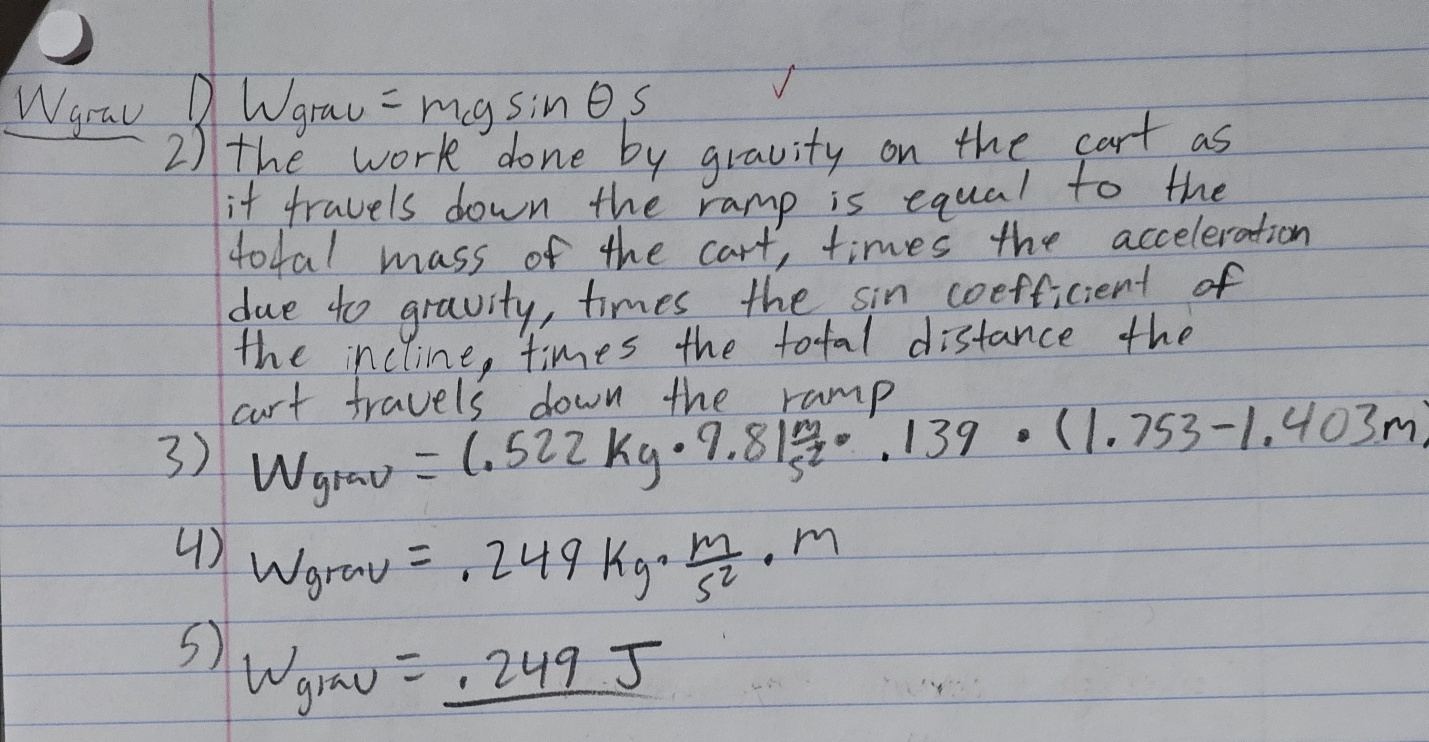 Wgrav 1) Wgrav = mg sin θ s ✓
2) the work done by gravity on the cart as
it travels down the ramp is equal to the
total mass of the cart, times the acceleration
due to gravity, times the sin coefficient of
the incline, times the total distance the
cart travels down the ramp
3) Wgrav = (.522 Kg • 9.81 m/s² • .139 • (1.753-1.403m)
4) Wgrav = .249 Kg • m/s² • m
5) Wgrav = .249 J